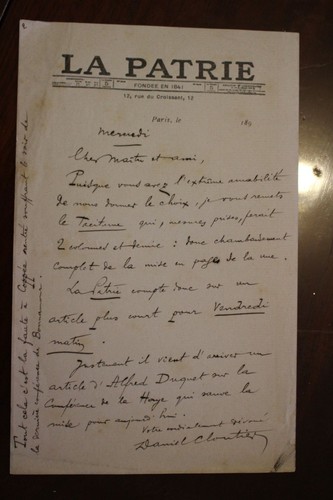 LA PATRIE
FONDÉE EN 1841
12, rue du Croissant, 12
Paris, le 189
Mercredi
Cher Maître et ami,
Puisque vous avez l'extrême amabilité
de nous donner le choix, je vous remets
le Trentume qui, mesures prises, ferait
2 colonnes et demie : donc chambardement
complet de la mise en pages de la une.
La Patrie compte donc sur un
article plus court pour Vendredi
matin.
Justement il vient d'arriver un
article d'Alfred Duquet sur la
Conférence de la Haye qui sauve la
mise pour aujourd'hui.
Votre cordialement dévoué
Daniel Cloutier
Tout cela c'est la faute à Coppée
la dernière conférence de Bonnemain